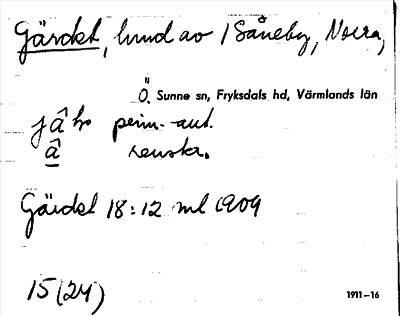 Gärdet, lund av / Såneby, Norra,
Ö. Sunne sn, Fryksdals hd, Värmlands län
jâƕ prim.-aut.
â renskr.
Gärdet 18:12 ml 1909
15(24)
1911–16